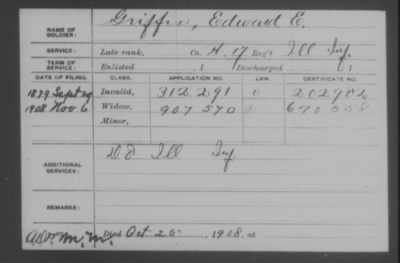 NAME OF SOLDIER: Griffin, Edward E.
SERVICE: Late rank, Co. H, 47 Reg't Ill Inf.
TERM OF SERVICE: Enlisted 1 Discharged 1
DATE OF FILING. CLASS. APPLICATION NO. LAW. CERTIFICATE NO.
1879 Sept 29 Invalid, 312.291 202982
1908 Nov 6 Widow, 907 570 670 558
Minor,
ADDITIONAL SERVICES: Ill Inf
REMARKS:
Died Oct 25, 1908, at